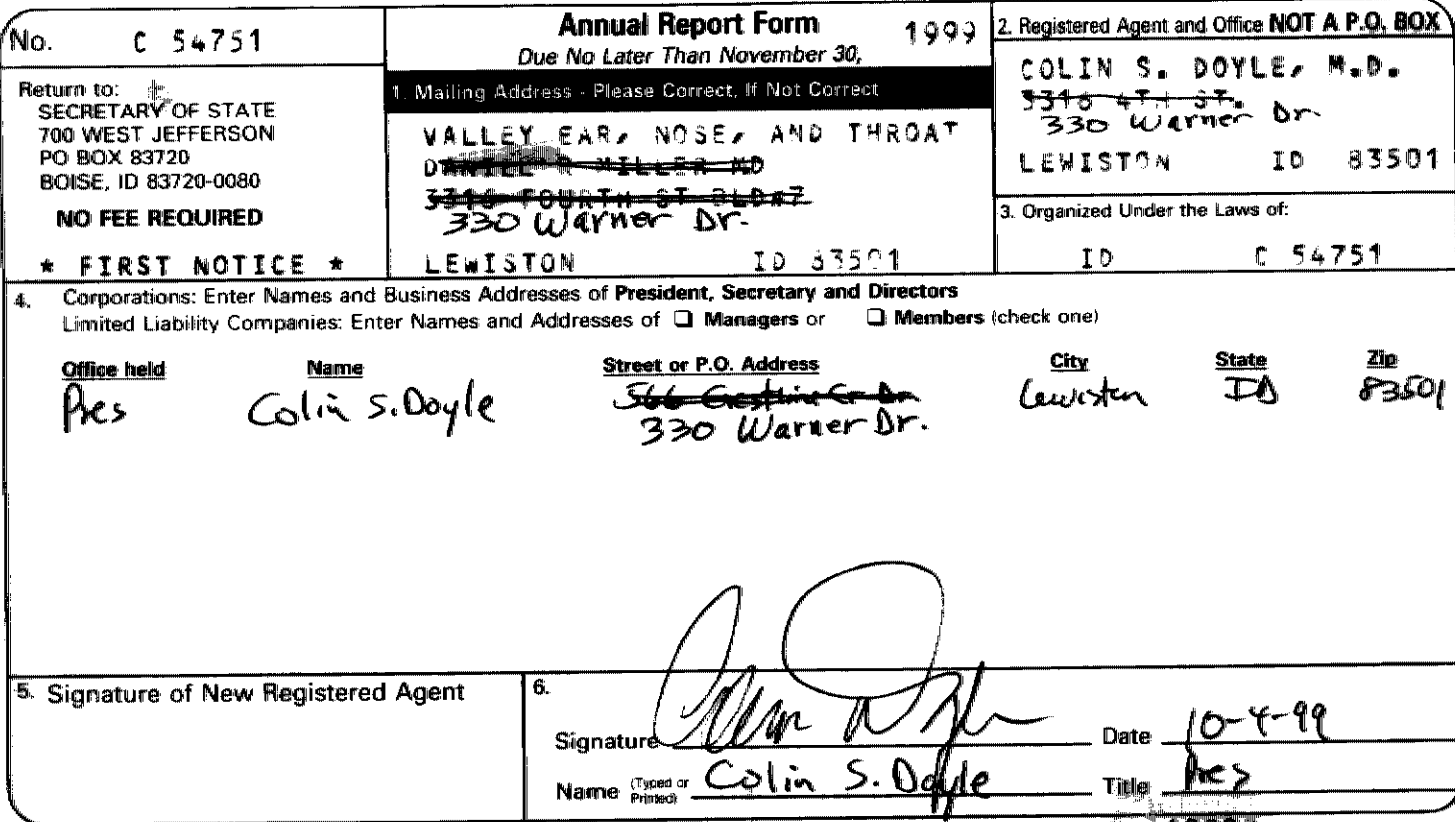 No. C 54751
Return to:
SECRETARY OF STATE
700 WEST JEFFERSON
PO BOX 83720
BOISE, ID 83720-0080
NO FEE REQUIRED
* FIRST NOTICE *
Annual Report Form 1999
Due No Later Than November 30,
1. Mailing Address - Please Correct, If Not Correct
VALLEY EAR, NOSE, AND THROAT
MILLER MD
3316 FOURTH ST BLD#7
330 Warner Dr.
LEWISTON ID 83501
2. Registered Agent and Office NOT A P.O. BOX
COLIN S. DOYLE, M.D.
3316 4TH ST.
330 Warner Dr
LEWISTON ID 83501
3. Organized Under the Laws of:
ID C 54751
4. Corporations: Enter Names and Business Addresses of President, Secretary and Directors
Limited Liability Companies: Enter Names and Addresses of ❑ Managers or ❑ Members (check one)
Office held Name Street or P.O. Address City State Zip
Pres Colin S. Doyle 566 Dr Lewiston ID 83501
330 Warner Dr.
5. Signature of New Registered Agent
6.
Signature Date 10-4-99
Name (Typed or Printed) Colin S. Doyle Title Pres